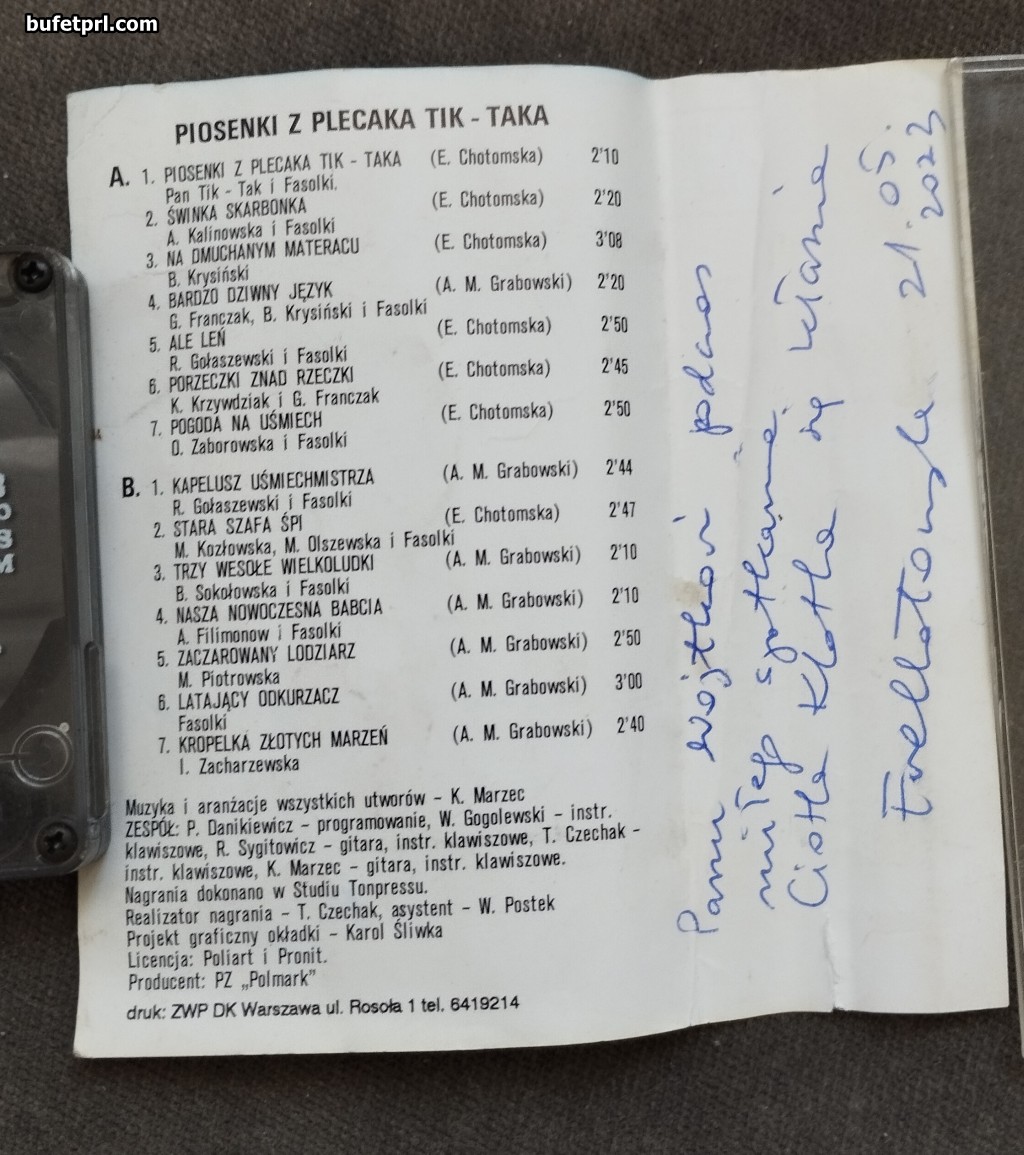 bufetprl.com
PIOSENKI Z PLECAKA TIK - TAKA
A. 1. PIOSENKI Z PLECAKA TIK - TAKA (E. Chotomska) 2'10
Pan Tik - Tak i Fasolki.
2. ŚWINKA SKARBONKA (E. Chotomska) 2'20
A. Kalinowska i Fasolki
3. NA DMUCHANYM MATERACU (E. Chotomska) 3'08
B. Krysiński
4. BARDZO DZIWNY JĘZYK (A. M. Grabowski) 2'20
G. Franczak, B. Krysiński i Fasolki
5. ALE LEŃ (E. Chotomska) 2'50
R. Gołaszewski i Fasolki
6. PORZECZKI ZNAD RZECZKI (E. Chotomska) 2'45
K. Krzywdziak i G. Franczak
7. POGODA NA UŚMIECH (E. Chotomska) 2'50
O. Zaborowska i Fasolki
B. 1. KAPELUSZ UŚMIECHMISTRZA (A. M. Grabowski) 2'44
R. Gołaszewski i Fasolki
2. STARA SZAFA ŚPI (E. Chotomska) 2'47
M. Kozłowska, M. Olszewska i Fasolki
3. TRZY WESOŁE WIELKOLUDKI (A. M. Grabowski) 2'10
B. Sokołowska i Fasolki
4. NASZA NOWOCZESNA BABCIA (A. M. Grabowski) 2'10
A. Filimonow i Fasolki
5. ZACZAROWANY LODZIARZ (A. M. Grabowski) 2'50
M. Piotrowska
6. LATAJĄCY ODKURZACZ (A. M. Grabowski) 3'00
Fasolki
7. KROPELKA ZŁOTYCH MARZEŃ (A. M. Grabowski) 2'40
I. Zacharzewska
Muzyka i aranżacje wszystkich utworów - K. Marzec
ZESPÓŁ: P. Danikiewicz - programowanie, W. Gogolewski - instr.
klawiszowe, R. Sygitowicz - gitara, instr. klawiszowe, T. Czechak -
instr. klawiszowe, K. Marzec - gitara, instr. klawiszowe.
Nagrania dokonano w Studiu Tonpressu.
Realizator nagrania - T. Czechak, asystent - W. Postek
Projekt graficzny okładki - Karol Śliwka
Licencja: Poliart i Pronit.
Producent: PZ „Polmark”
druk: ZWP DK Warszawa ul. Rosoła 1 tel. 6419214
Panu Wojtkowi podczas
miłego spotkania,
Ciotka Klotka się kłania
Ewa Chotomska 21.05.
2023